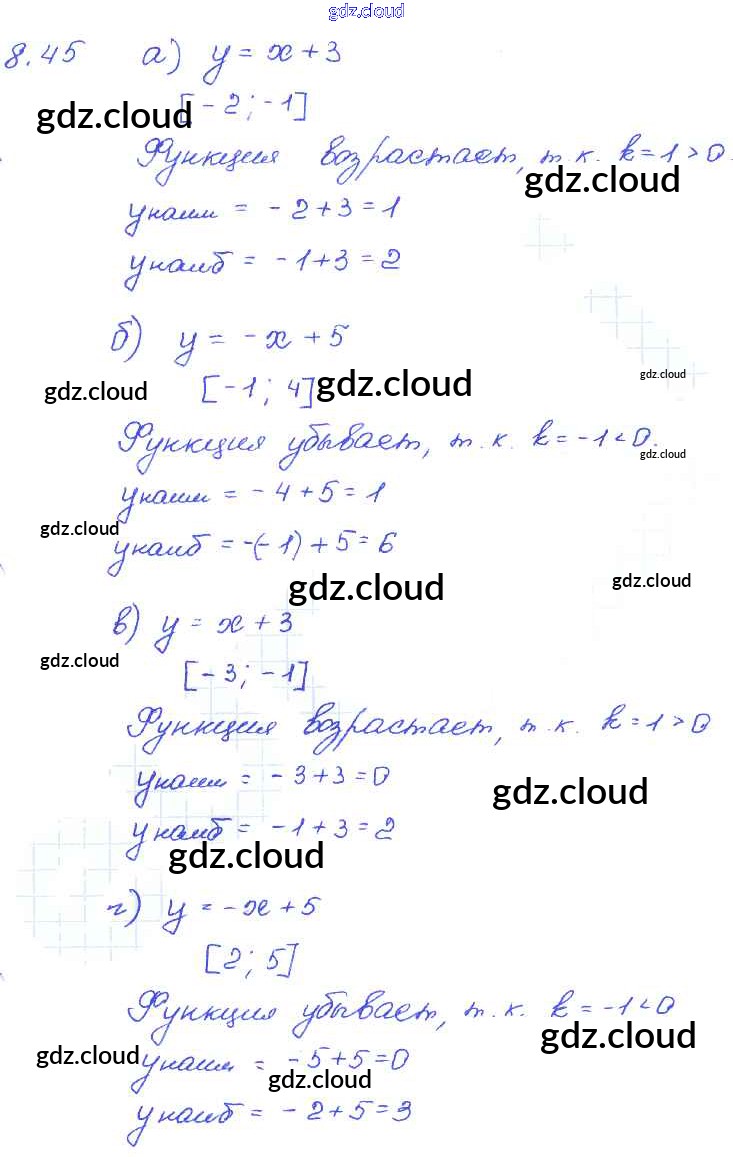 gdz.cloud
8.45 а) y = x + 3
gdz.cloud [-2; -1]
Функция возрастает, т.к. k = 1 > 0.
gdz.cloud
yнаим = -2 + 3 = 1
yнаиб = -1 + 3 = 2
б) y = -x + 5
gdz.cloud
gdz.cloud [-1; 4] gdz.cloud
Функция убывает, т.к. k = -1 < 0.
gdz.cloud
yнаим = -4 + 5 = 1
gdz.cloud
yнаиб = -(-1) + 5 = 6
gdz.cloud gdz.cloud
в) y = x + 3
gdz.cloud
[-3; -1]
Функция возрастает, т.к. k = 1 > 0
yнаим = -3 + 3 = 0
gdz.cloud
yнаиб = -1 + 3 = 2
gdz.cloud
г) y = -x + 5
[2; 5]
Функция убывает, т.к. k = -1 < 0
gdz.cloud
gdz.cloud yнаим = -5 + 5 = 0
gdz.cloud
yнаиб = -2 + 5 = 3